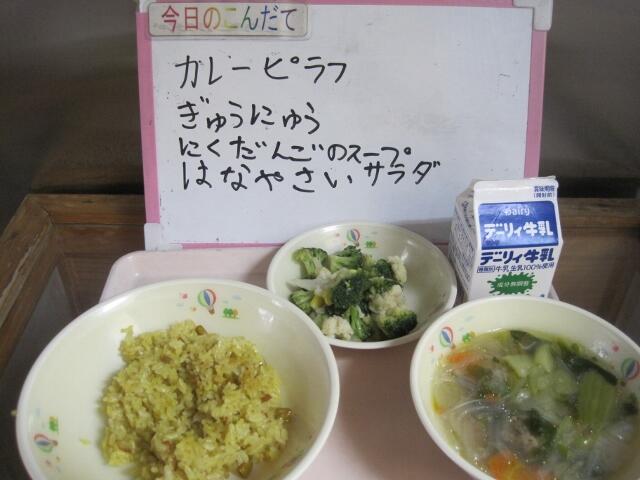 今日のこんだて
カレーピラフ
ぎゅうにゅう
にくだんごのスープ
はなやさいサラダ
Dairy
デーリィ牛乳
デーリィ牛乳
種類別 牛乳 生乳100%使用
成分無調整